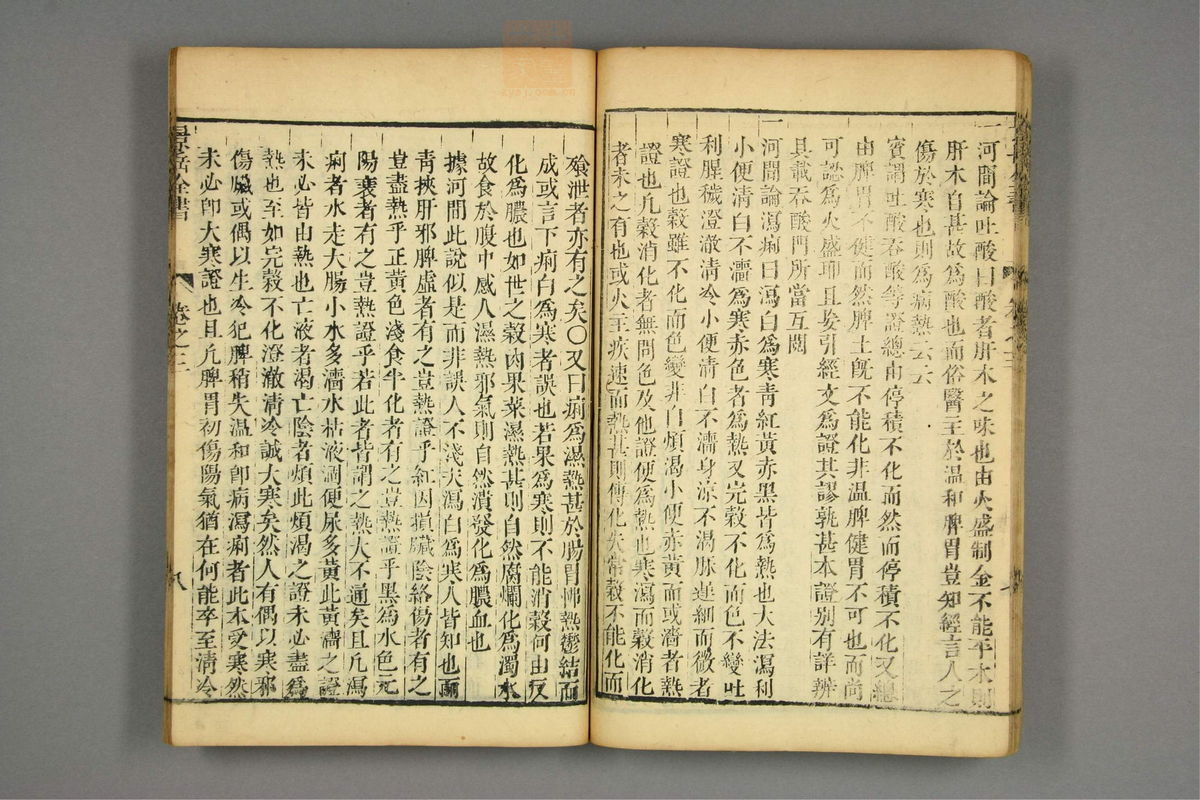 一河間論吐酸曰酸者肝木之味也由火盛制金不能平木則
肝木自甚故爲酸也而俗醫主於温和脾胃豈知經言人之
傷於寒也則爲病熱云云
賓謂吐酸吞酸等證總由停積不化而然而停積不化又總
由脾胃不健而然脾土旣不能化非温脾健胃不可也而尚
可認爲火盛耶且妄引經文爲證其謬孰甚本證别有詳辨
具載吞酸門所當互閱
一河間論瀉痢曰瀉白爲寒靑紅黃赤黑皆爲熱也大法瀉利
小便清白不濇爲寒赤色者爲熱又完穀不化而色不變吐
利腥穢澄澈清冷小便清白不濇身凉不渴脉遲細而微者
寒證也穀雖不化而色變非白煩渴小便赤黃而或濇者熱
證也凡穀消化者無問色及他證便爲熱也寒瀉而穀消化
者未之有也或火主疾速而熱甚則傳化失常穀不能化而
飱泄者亦有之矣〇又曰痢爲濕熱甚於腸胃怫熱鬱結而
成或言下痢白爲寒者誤也若果爲寒則不能消穀何由反
化爲膿也如世之穀肉果菜濕熱甚則自然腐爛化爲濁水
故食於腹中感人濕熱邪氣則自然潰發化爲膿血也
據河間此說似是而非誤人不淺夫瀉白爲寒人皆知也而
靑挾肝邪脾虚者有之豈熱證乎紅因損臟陰絡傷者有之
豈盡熱乎正黃色淺食半化者有之豈熱證乎黑爲水色元
陽衰者有之豈熱證乎若此者皆謂之熱大不通矣且凡瀉
痢者水走大腸小水多濇水枯液涸便尿多黃此黃濇之證
未必皆由熱也亡液者渴亡陰者煩此煩渴之證未必盡爲
熱也至如完穀不化澄澈清冷誠大寒矣然人有偶以寒邪
傷臟或偶以生冷犯脾稍失温和卽病瀉痢者此本受寒然
未必卽大寒證也且凡脾胃初傷陽氣猶在何能卒至清冷
景岳全書
卷之三
八